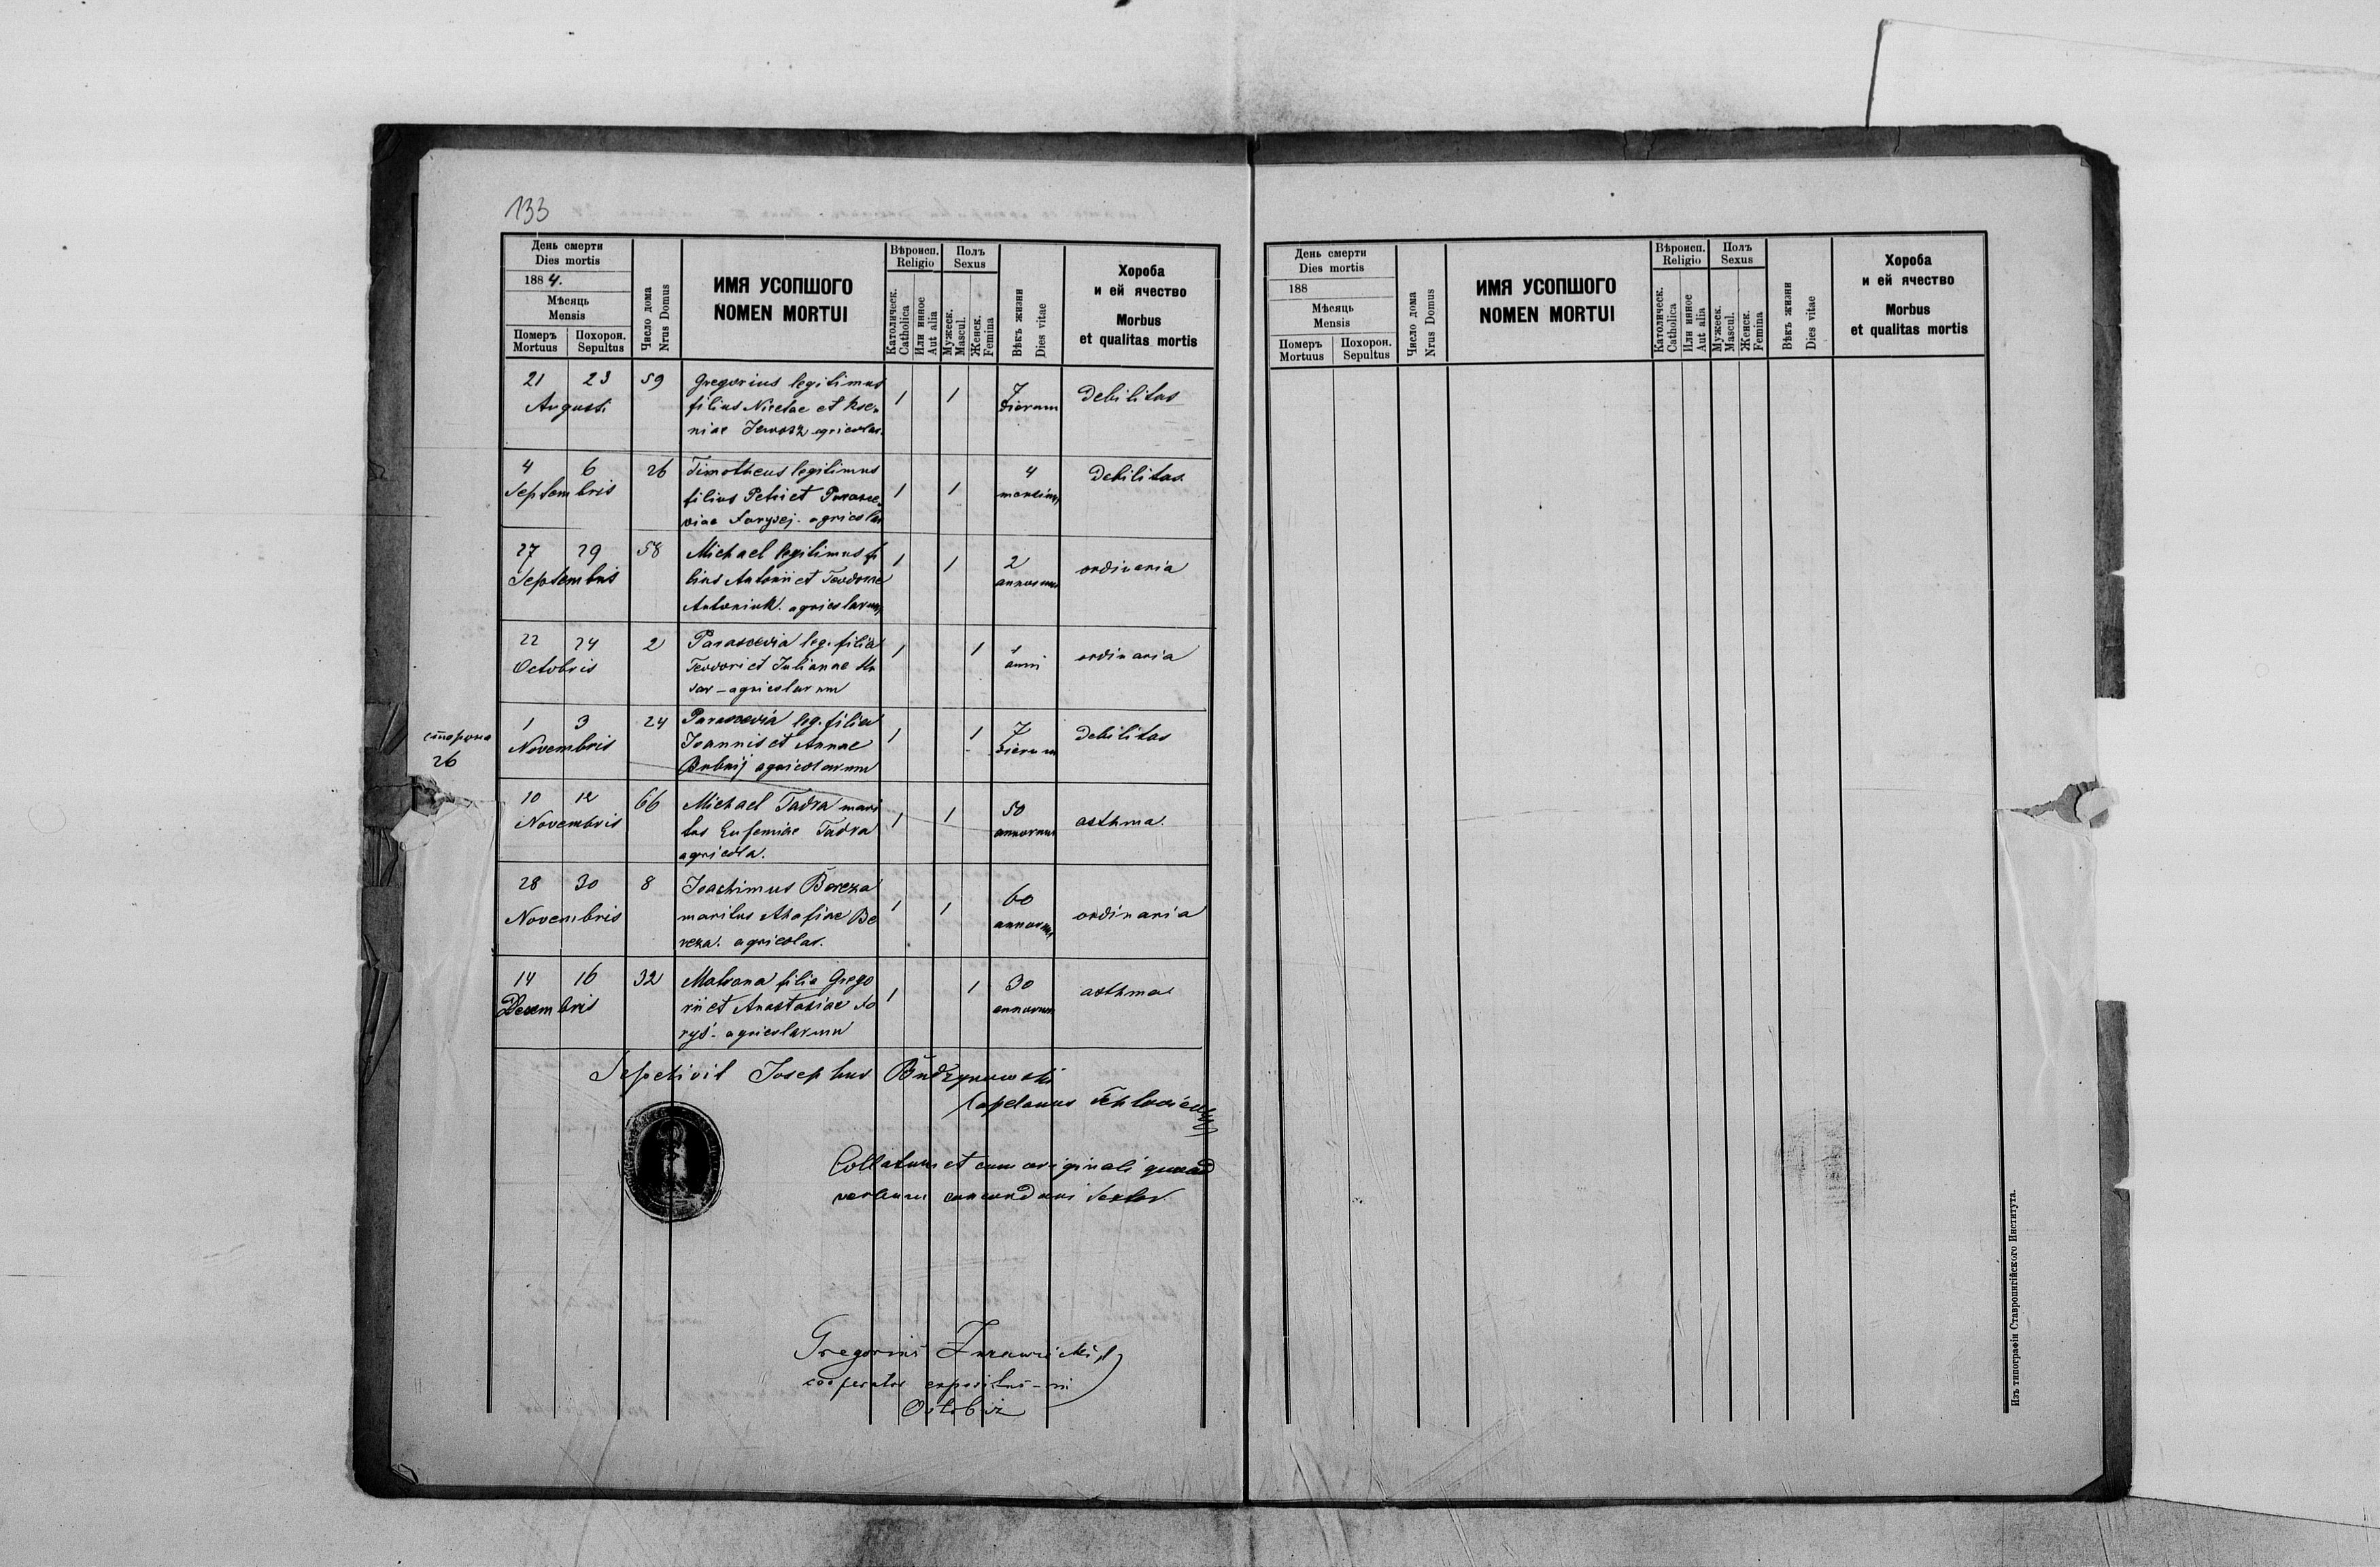 133
День смерти
Dies mortis
1884.
Мѣсяць
Mensis
Померъ
Mortuus
Похорон.
Sepultus
Число дома
Nrus Domus
ИМЯ УСОПШОГО
NOMEN MORTUI
Вѣроисп.
Religio
Католическ.
Catholica
Или инное
Aut alia
Полъ
Sexus
Мужеск.
Mascul.
Женск.
Femina
Вѣкъ жизни
Dies vitae
Хороба
и ей ячество
Morbus
et qualitas mortis
21 23 59 Gregorius legitimus
Augusti filius Nicetae et Kse- 1 1 7 dierum Debilitas
niae agricolar.
4 6 26 Timotheus legitimus
Septembris filius Petri et Parasce- 1 1 4 mensium Debilitas
viae agricolar
27 29 58 Michael legitimus fi
Septembris lius Antonii et Teodorae 1 1 2 annorum ordinaria
Antoniuk. agricolarum
22 24 2 Parascevia leg. filia
Octobris Teodori et Julianae 1 1 1 anni ordinaria
agricolarum
1 3 24 Parascevia leg. filia
сторона
26
Novembris Joannis et Annae 1 1 7 dierum debilitas
Bubnij agricolarum
10 12 66 Michael Tadra mari
Novembris tus Eufemiae Tadra 1 1 50 annorum asthma.
agricola.
28 30 8 Joachimus Bereza
Novembris maritus Ahafiae Be 1 1 60 annorum ordinaria
reza. agricolar.
14 16 32 Matrona filia Grego
Decembris rii et Anastasiae 1 1 30 annorum asthma
agricolarum
Sepelivit Josephus Budzynowski
Capelanus
Collatum et cum originali quoad
Gregorius
cooperator expositus in
День смерти
Dies mortis
188
Мѣсяць
Mensis
Померъ
Mortuus
Похорон.
Sepultus
Число дома
Nrus Domus
ИМЯ УСОПШОГО
NOMEN MORTUI
Вѣроисп.
Religio
Католическ.
Catholica
Или инное
Aut alia
Полъ
Sexus
Мужеск.
Mascul.
Женск.
Femina
Вѣкъ жизни
Dies vitae
Хороба
и ей ячество
Morbus
et qualitas mortis
Изъ типографіи Ставропигійского Института.